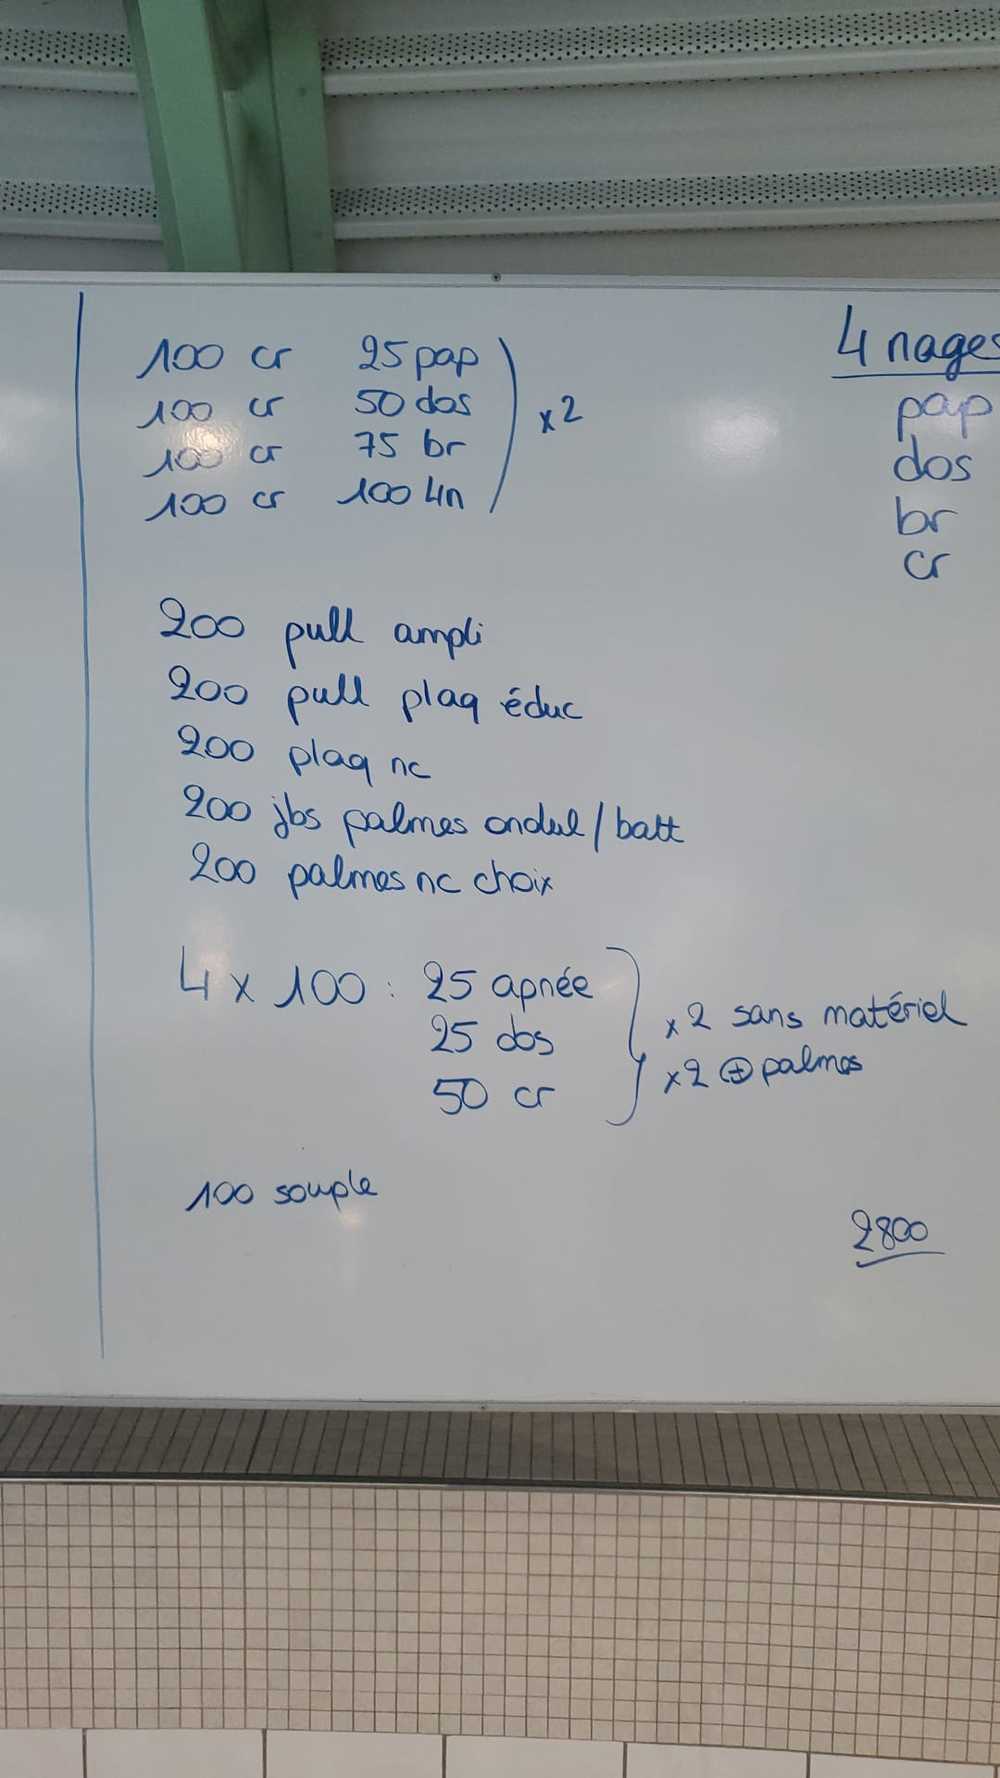 100 cr 25 pap
100 cr 50 dos
100 cr 75 br
100 cr 100 4n
x2
4 nages
pap
dos
br
cr
200 pull ampli
200 pull plaq éduc
200 plaq nc
200 jbs palmes ondul/batt
200 palmes nc choix
4 x 100 : 25 apnée
25 dos
50 cr
x2 sans matériel
x2 ⊕ palmes
100 souple
2800